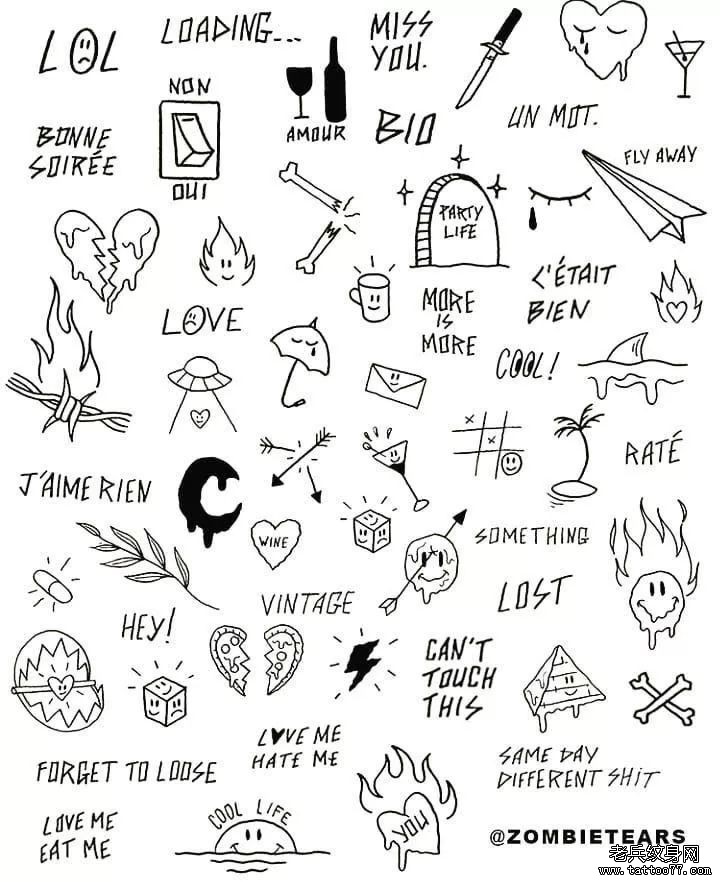 LOL
LOADING...
MISS
YOU.
NON
OUI
AMOUR
BIO
UN MOT.
BONNE
SOIRÉE
FLY AWAY
PARTY
LIFE
C'ÉTAIT
BIEN
LOVE
MORE
IS
MORE
COOL!
RATÉ
J'AIME RIEN
WINE
SOMETHING
LOST
VINTAGE
HEY!
CAN'T
TOUCH
THIS
LOVE ME
HATE ME
FORGET TO LOOSE
SAME DAY
DIFFERENT SHIT
LOVE ME
EAT ME
COOL LIFE
YOU
@ZOMBIETEARS
老兵纹身网
www.tattoo77.com